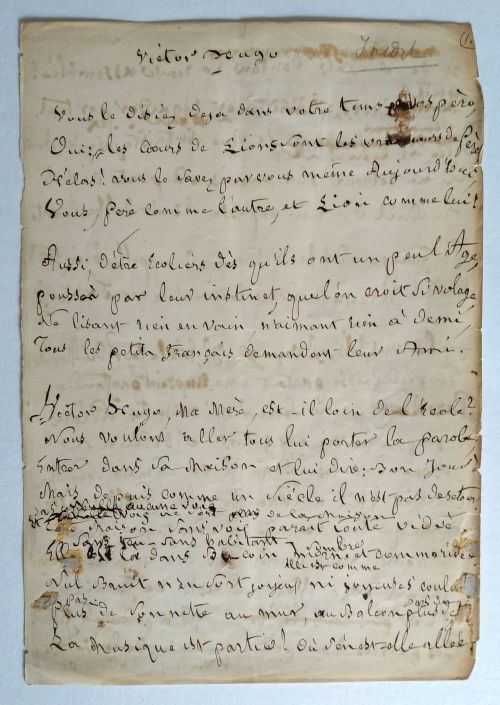 1.
Victor Hugo.
Inédit
Vous le disiez deja dans votre tems
Oui, les Cœurs de Lions sont les vrais cœurs de Père
Hélas! vous le savez par vous même Aujourd'hui
Vous, Père comme l'autre, et Lion comme lui!
Aussi, d'être Ecoliers dès qu'ils ont un peu l'Age,
poussés par leur instinct, que l'on croit si volage
Ne lisant rien en vain, n'aimant rien à demi,
Tous les petits Français demandent leur Ami.
Victor Hugo, Ma Mère, est-il loin de l'Ecole?
Nous voulons aller tous lui porter la parole
Entrer dans sa Maison et lui dire: Bon Jour!
Mais depuis comme un siècle il n'est pas de retour
aucune voix
de la Maison
Maison sans voix parait toute vidée
sans feu sans habitant
là dans son coin sombre et comme ridée
elle est comme
Nul bruit n'en sort joyeux ni joyeuses
pas
Plus de sonnete au mur, au Balcon plus
La Musique est partie! Où s'en est-elle allée